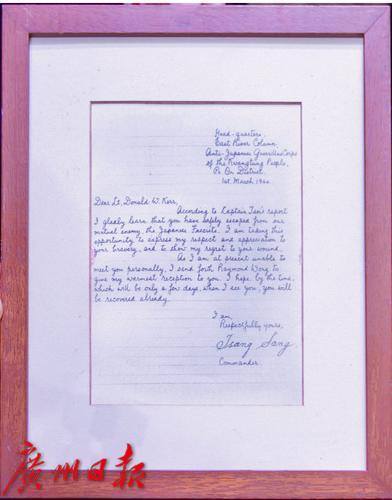 Head-quarters,
East River Column,
Anti-Japanese Guerillas Corps
of the Kwangtung People,
Po On District.
1st March 1944.
Dear Lt. Donald W. Kerr,
According to Captain Tsoi's report
I gladly learn that you have safely escaped from our
mutual enemy, the Japanese Fascists. I am taking this
opportunity to express my respect and appreciation to
your bravery, and to show my regret to your wound.
As I am at present unable to
meet you personally, I send forth Raymond Wong to
give my warmest reception to you. I hope, by the time,
which will be only a few days, when I see you, you will
be recovered already.
I am,
Respectfully yours,
Tsang Sang
Commander.
廣州日報